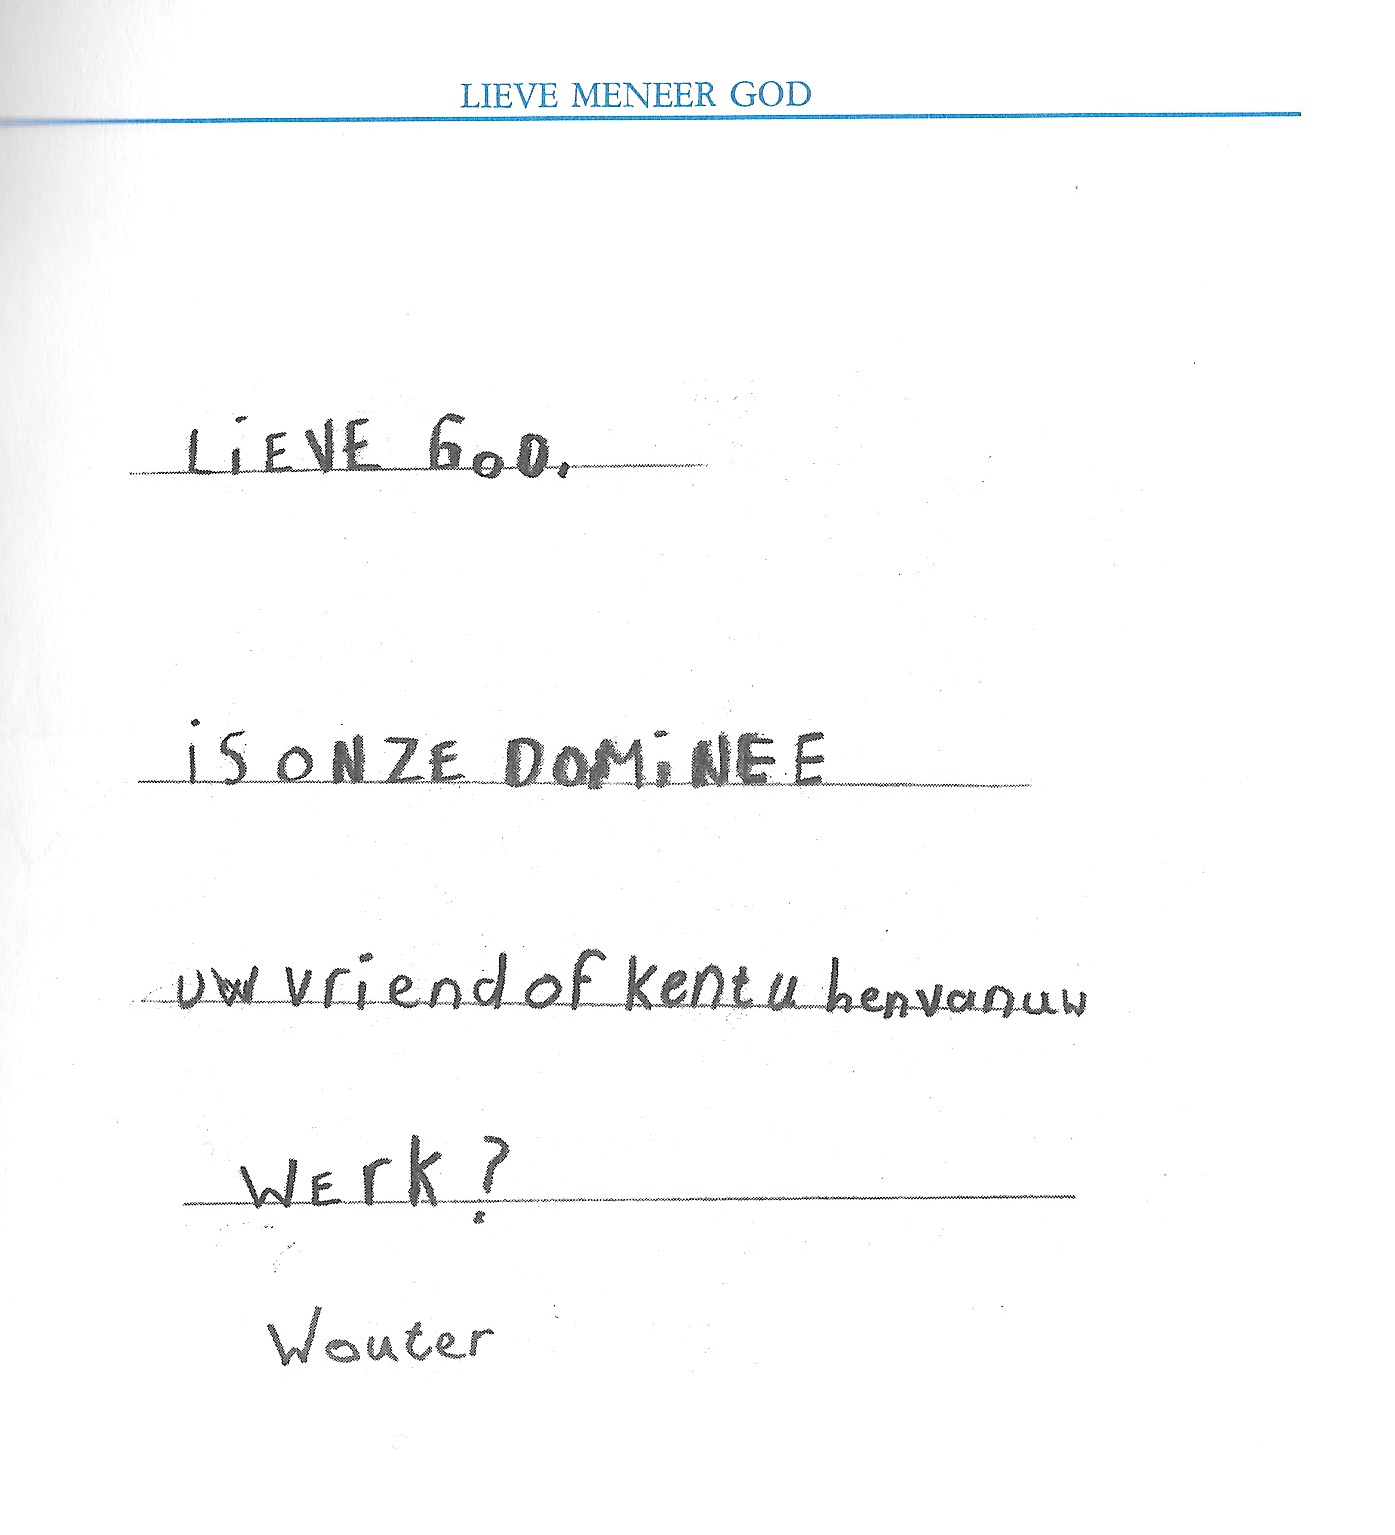 LIEVE MENEER GOD
LiEVE GoD,
iS ONZE DOMiNEE
uw vriend of kent u hen van uw
WErk?
Wouter